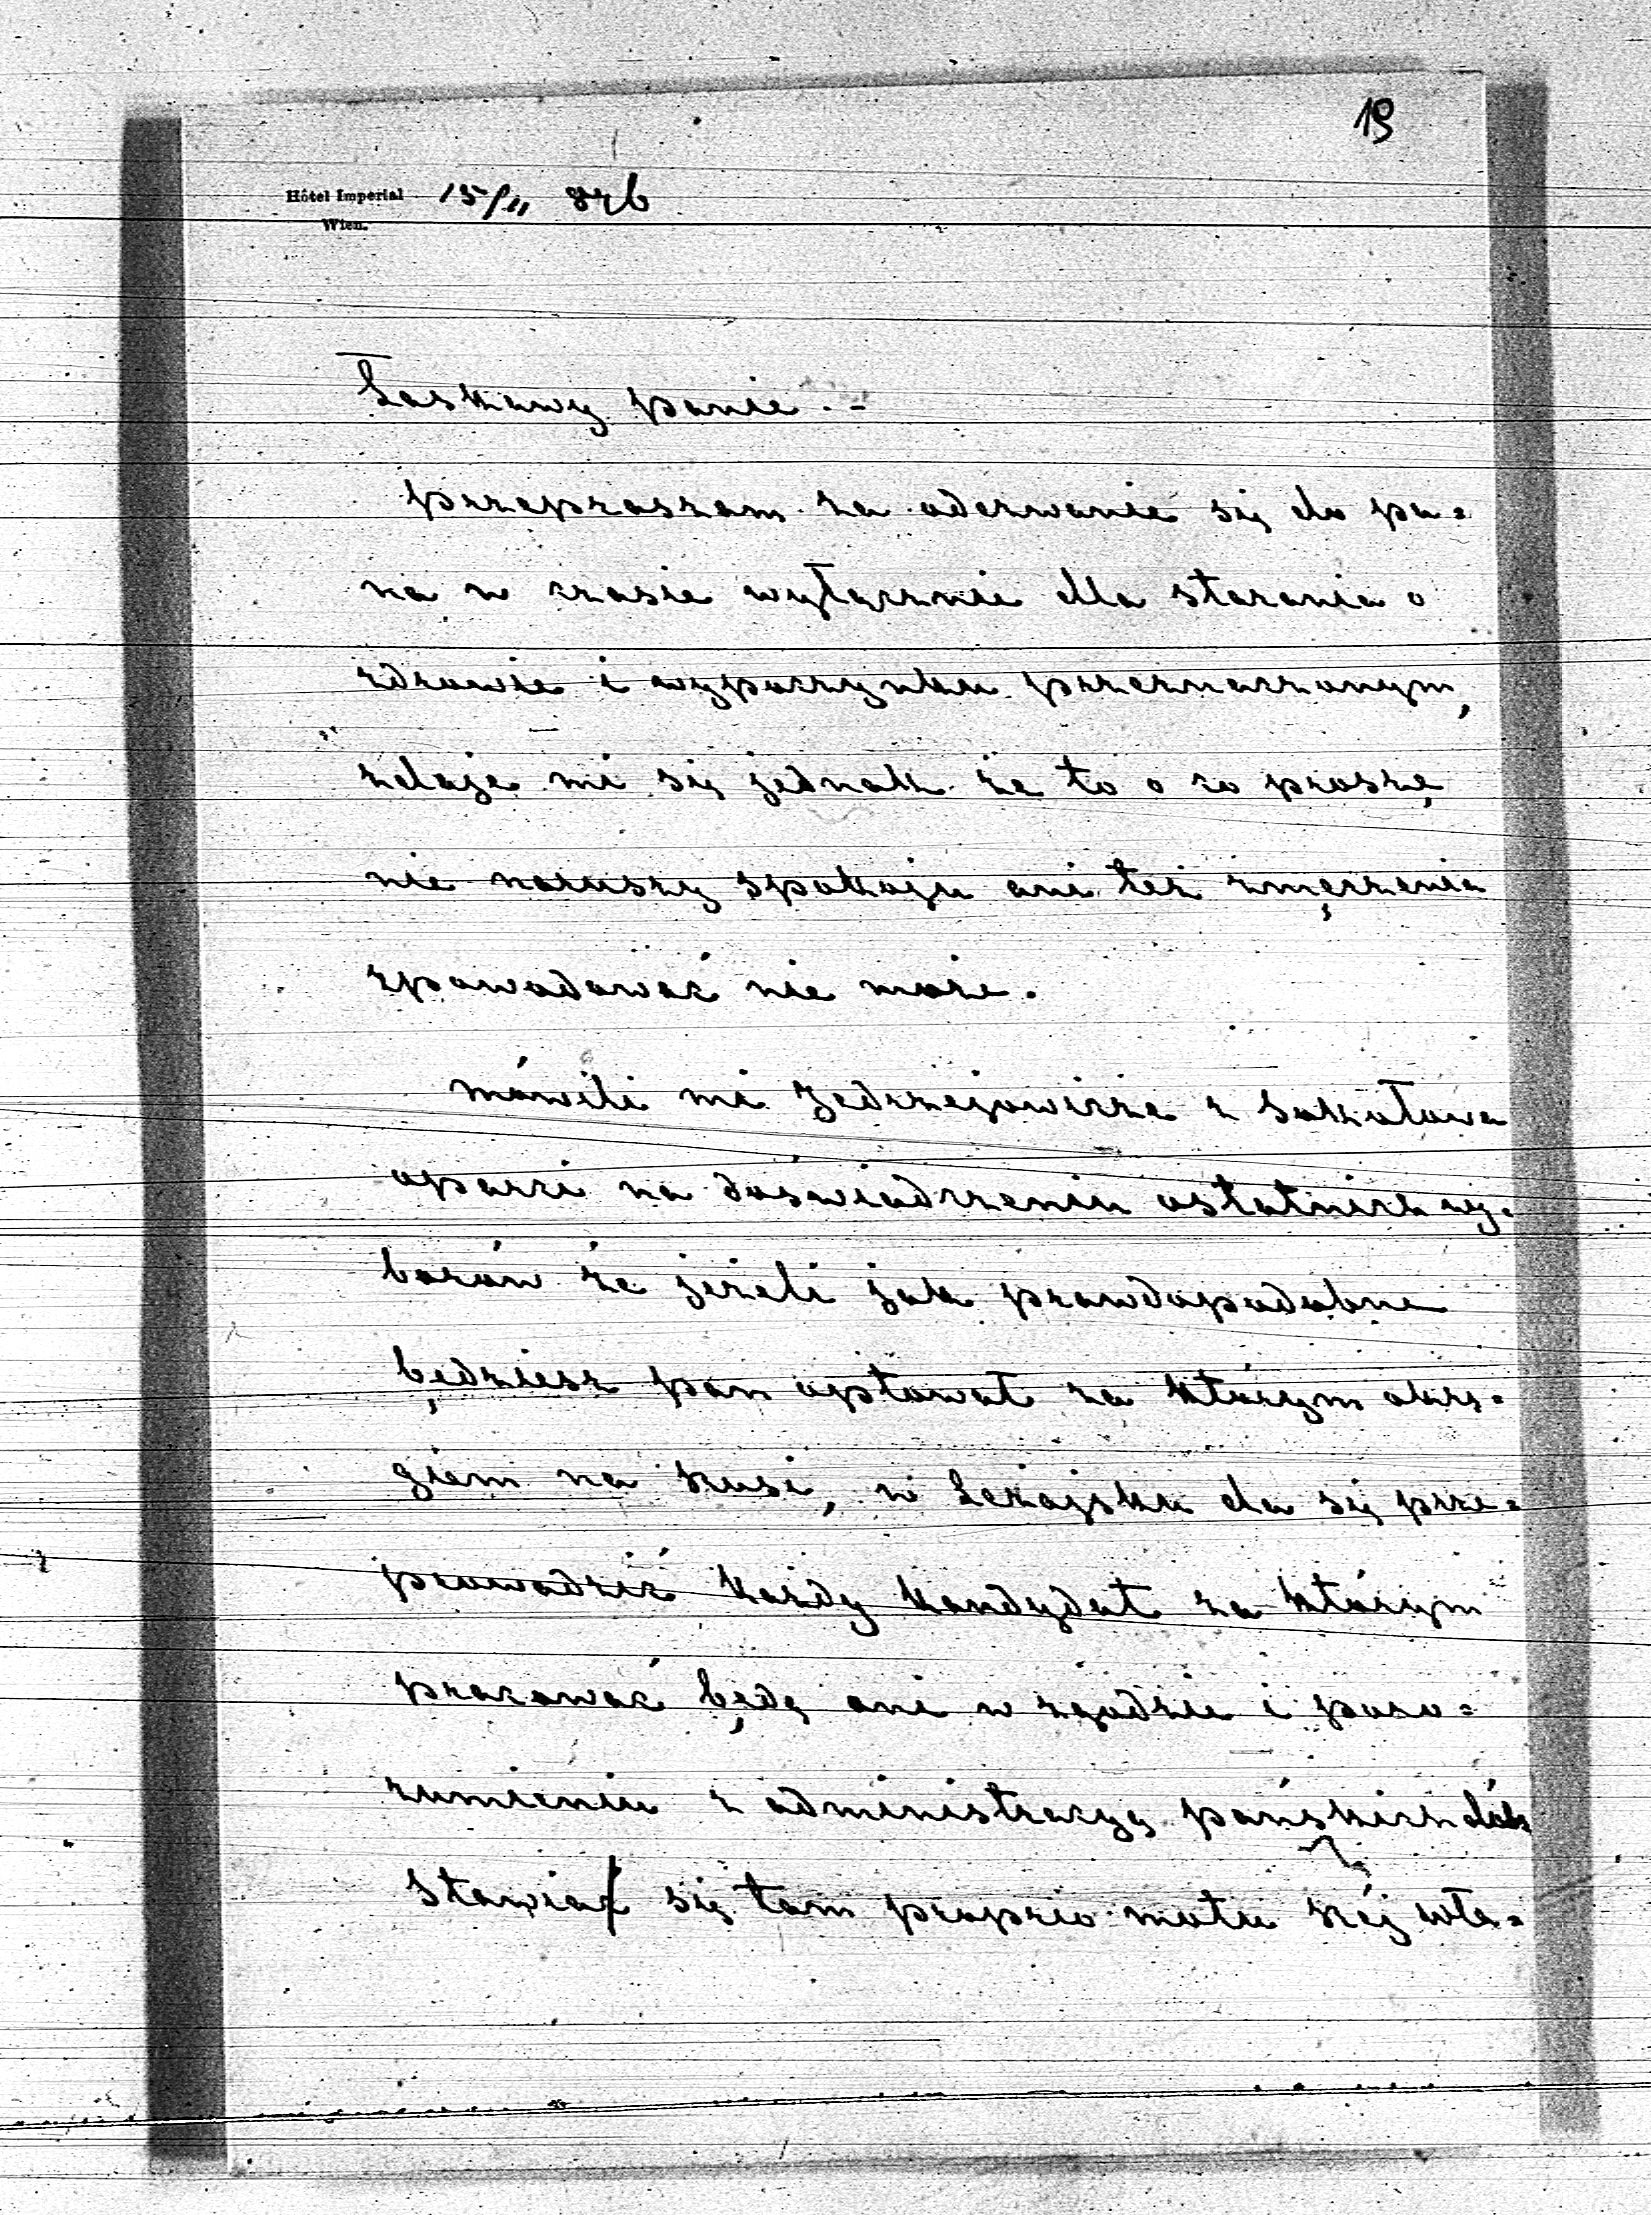 19
Hôtel Imperial 15/11 876
Wien.
Łaskawy panie. -
przepraszam za oderwanie się do pa=
na w czasie wyłącznie dla starania o
zdrowie i wypoczynku przeznaczonym,
zdaje mi się jednak że to o co proszę
nie naruszy spokoju ani też zmęczenia
spowodować nie może.
mówili mi Jędrzejowicze z Sokołowa
oparci na doświadczeniu ostatnich wy=
borów że jeżeli jak prawdopodobne
będziesz pan optował za którym okrę=
giem na Rusi, w Leżajsku da się prze=
prowadzić każdy kandydat za którym
pracować będą oni w zgodzie i poro=
zumieniu z administracyą pańskich dóbr
Stawiał się tam proprio motu